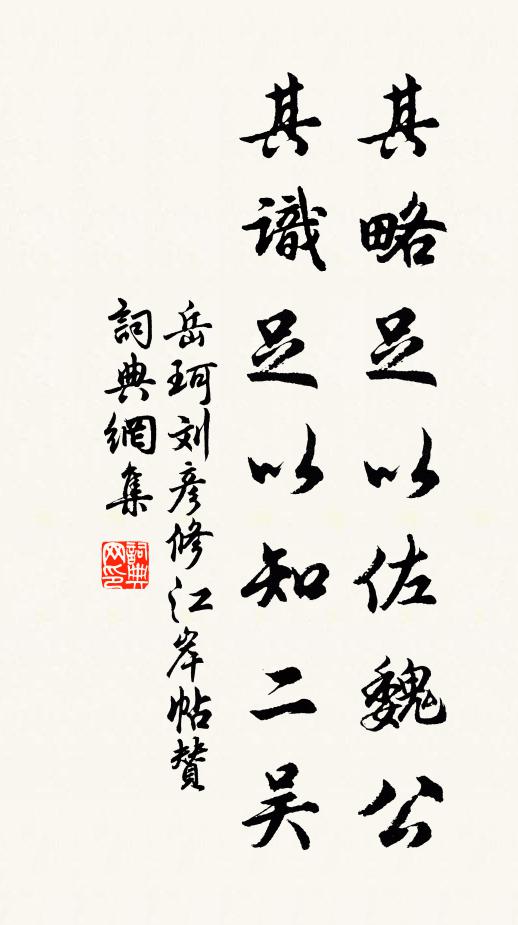 其略足以佐魏公
其識足以知二吴
岳珂刘彦修江岸帖賛
詞典網集
詞典网印